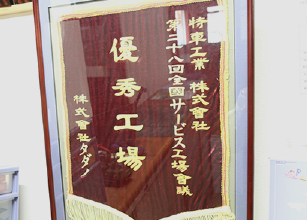 特車工業 株式會社
第二十八回全國サービス工場會議
優秀工場
株式會社タダノ